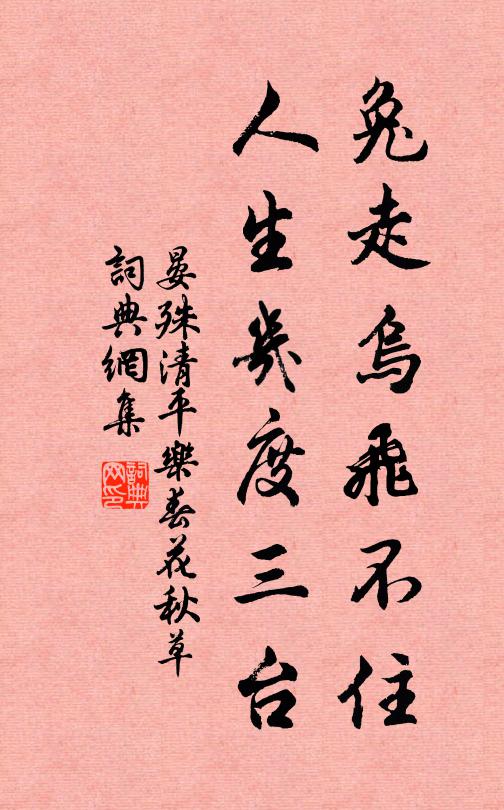 兔走烏飛不住
人生幾度三台
晏殊清平樂春花秋草
詞典網集
詞典網印